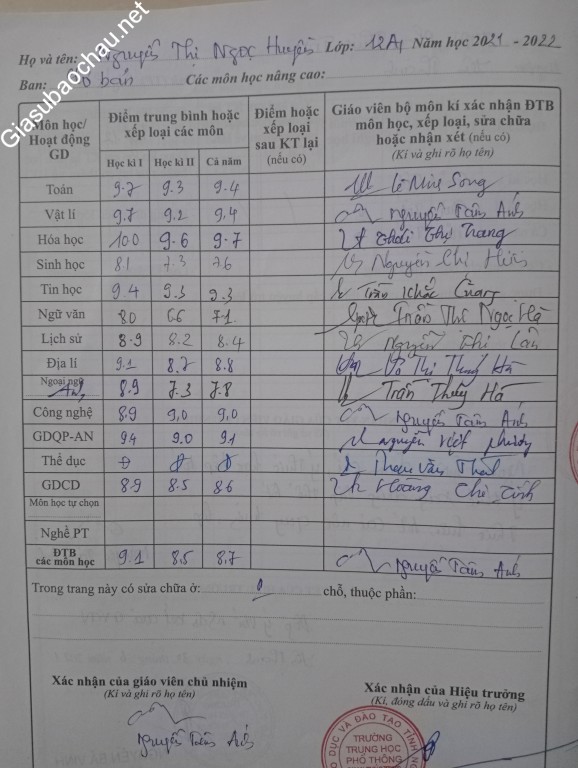 Giasubaochau.net
Họ và tên: Nguyễn Thị Ngọc Huyền Lớp: 12A1 Năm học 2021 - 2022
Ban: Cơ bản Các môn học nâng cao:
Môn học/ Hoạt động GD | Điểm trung bình hoặc xếp loại các môn | Điểm hoặc xếp loại sau KT lại (nếu có) | Giáo viên bộ môn kí xác nhận ĐTB môn học, xếp loại, sửa chữa hoặc nhận xét (nếu có) (Kí và ghi rõ họ tên)
Học kì I | Học kì II | Cả năm
Toán 9.7 9.3 9.4 Lê Song
Vật lí 9.7 9.2 9.4 Nguyễn Tấn Anh
Hóa học 10.0 9.6 9.7 Thái Thị Trang
Sinh học 8.1 7.3 7.6 Nguyễn Chị Hiền
Tin học 9.4 9.3 9.3 Trần Khắc Cường
Ngữ văn 8.0 6.6 7.1 Trần Thị Ngọc Hà
Lịch sử 8.9 8.2 8.4 Nguyễn Thị
Địa lí 9.1 8.7 8.8 Võ Thị Hà
Ngoại ngữ Anh 8.9 7.3 7.8 Trần Thúy Hà
Công nghệ 8.9 9,0 9,0 Nguyễn Tấn Anh
GDQP-AN 9.4 9.0 9.1 Nguyễn Việt Phương
Thể dục Đ Đ Đ Văn
GDCD 8.9 8.5 8.6 Hoàng Chị
Môn học tự chọn
Nghề PT
ĐTB các môn học 9.1 8.5 8.7 Nguyễn Tấn Anh
Trong trang này có sửa chữa ở: 0 chỗ, thuộc phần:
Xác nhận của giáo viên chủ nhiệm
(Kí và ghi rõ họ tên)
Nguyễn Tấn Anh
Xác nhận của Hiệu trưởng
(Kí, đóng dấu và ghi rõ họ tên)
DỤC VÀ ĐÀO TẠO TỈNH
TRƯỜNG
TRUNG HỌC
PHỔ THÔNG